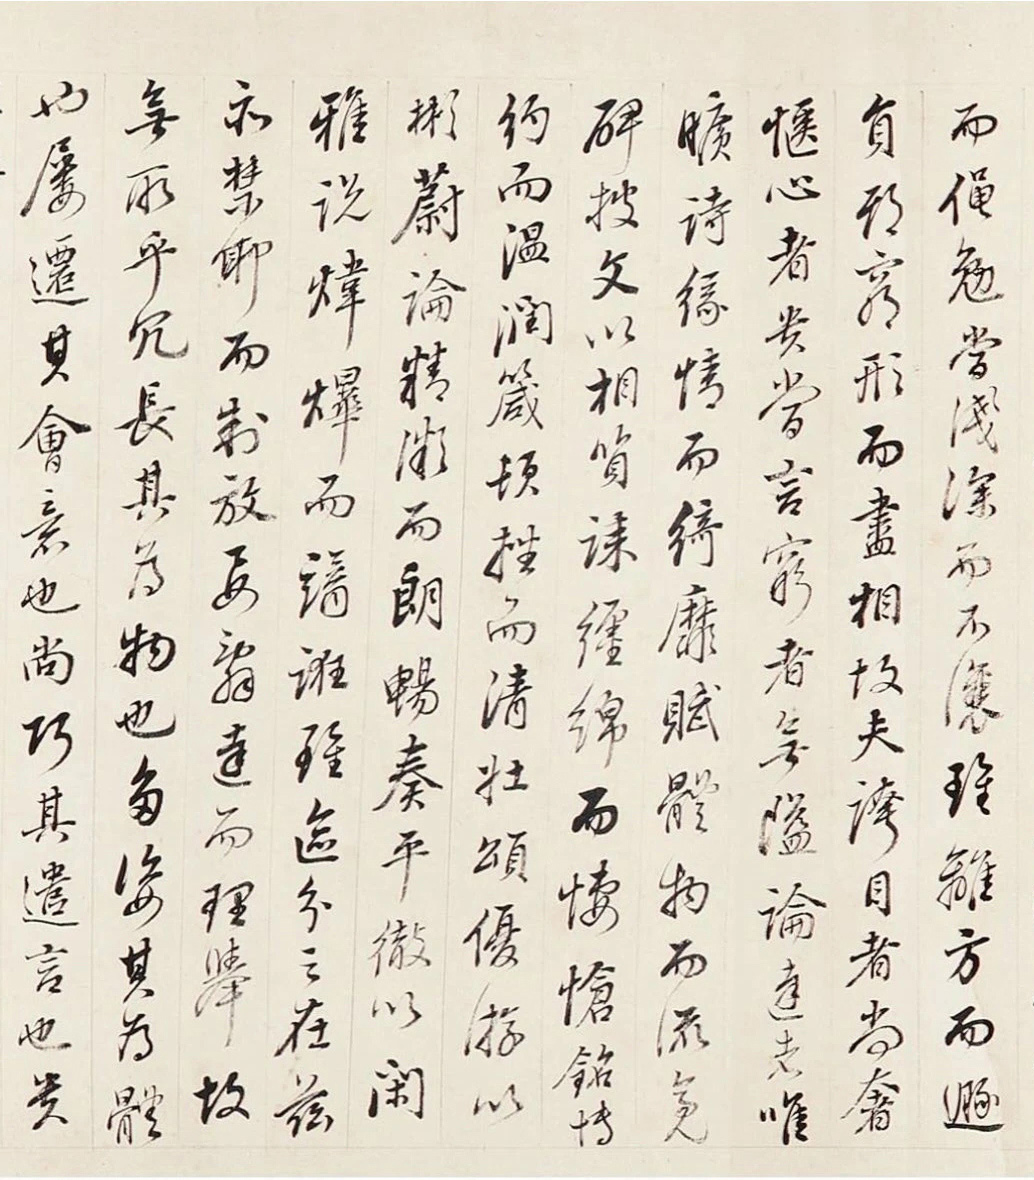 而僶勉當淺深而不讓雖離方而遯
員期窮形而盡相故夫誇目者尚奢
愜心者貴當言窮者無隘論達者唯
曠詩緣情而綺靡賦體物而瀏亮
碑披文以相質誄纏綿而悽愴銘博
約而温潤箴頓挫而清壯頌優游以
彬蔚論精微而朗暢奏平徹以閑
雅說煒曄而譎誑雖區分之在茲
亦禁邪而制放要辭達而理舉故
無取乎冗長其為物也多姿其為體
也屢遷其會意也尚巧其遣言也貴